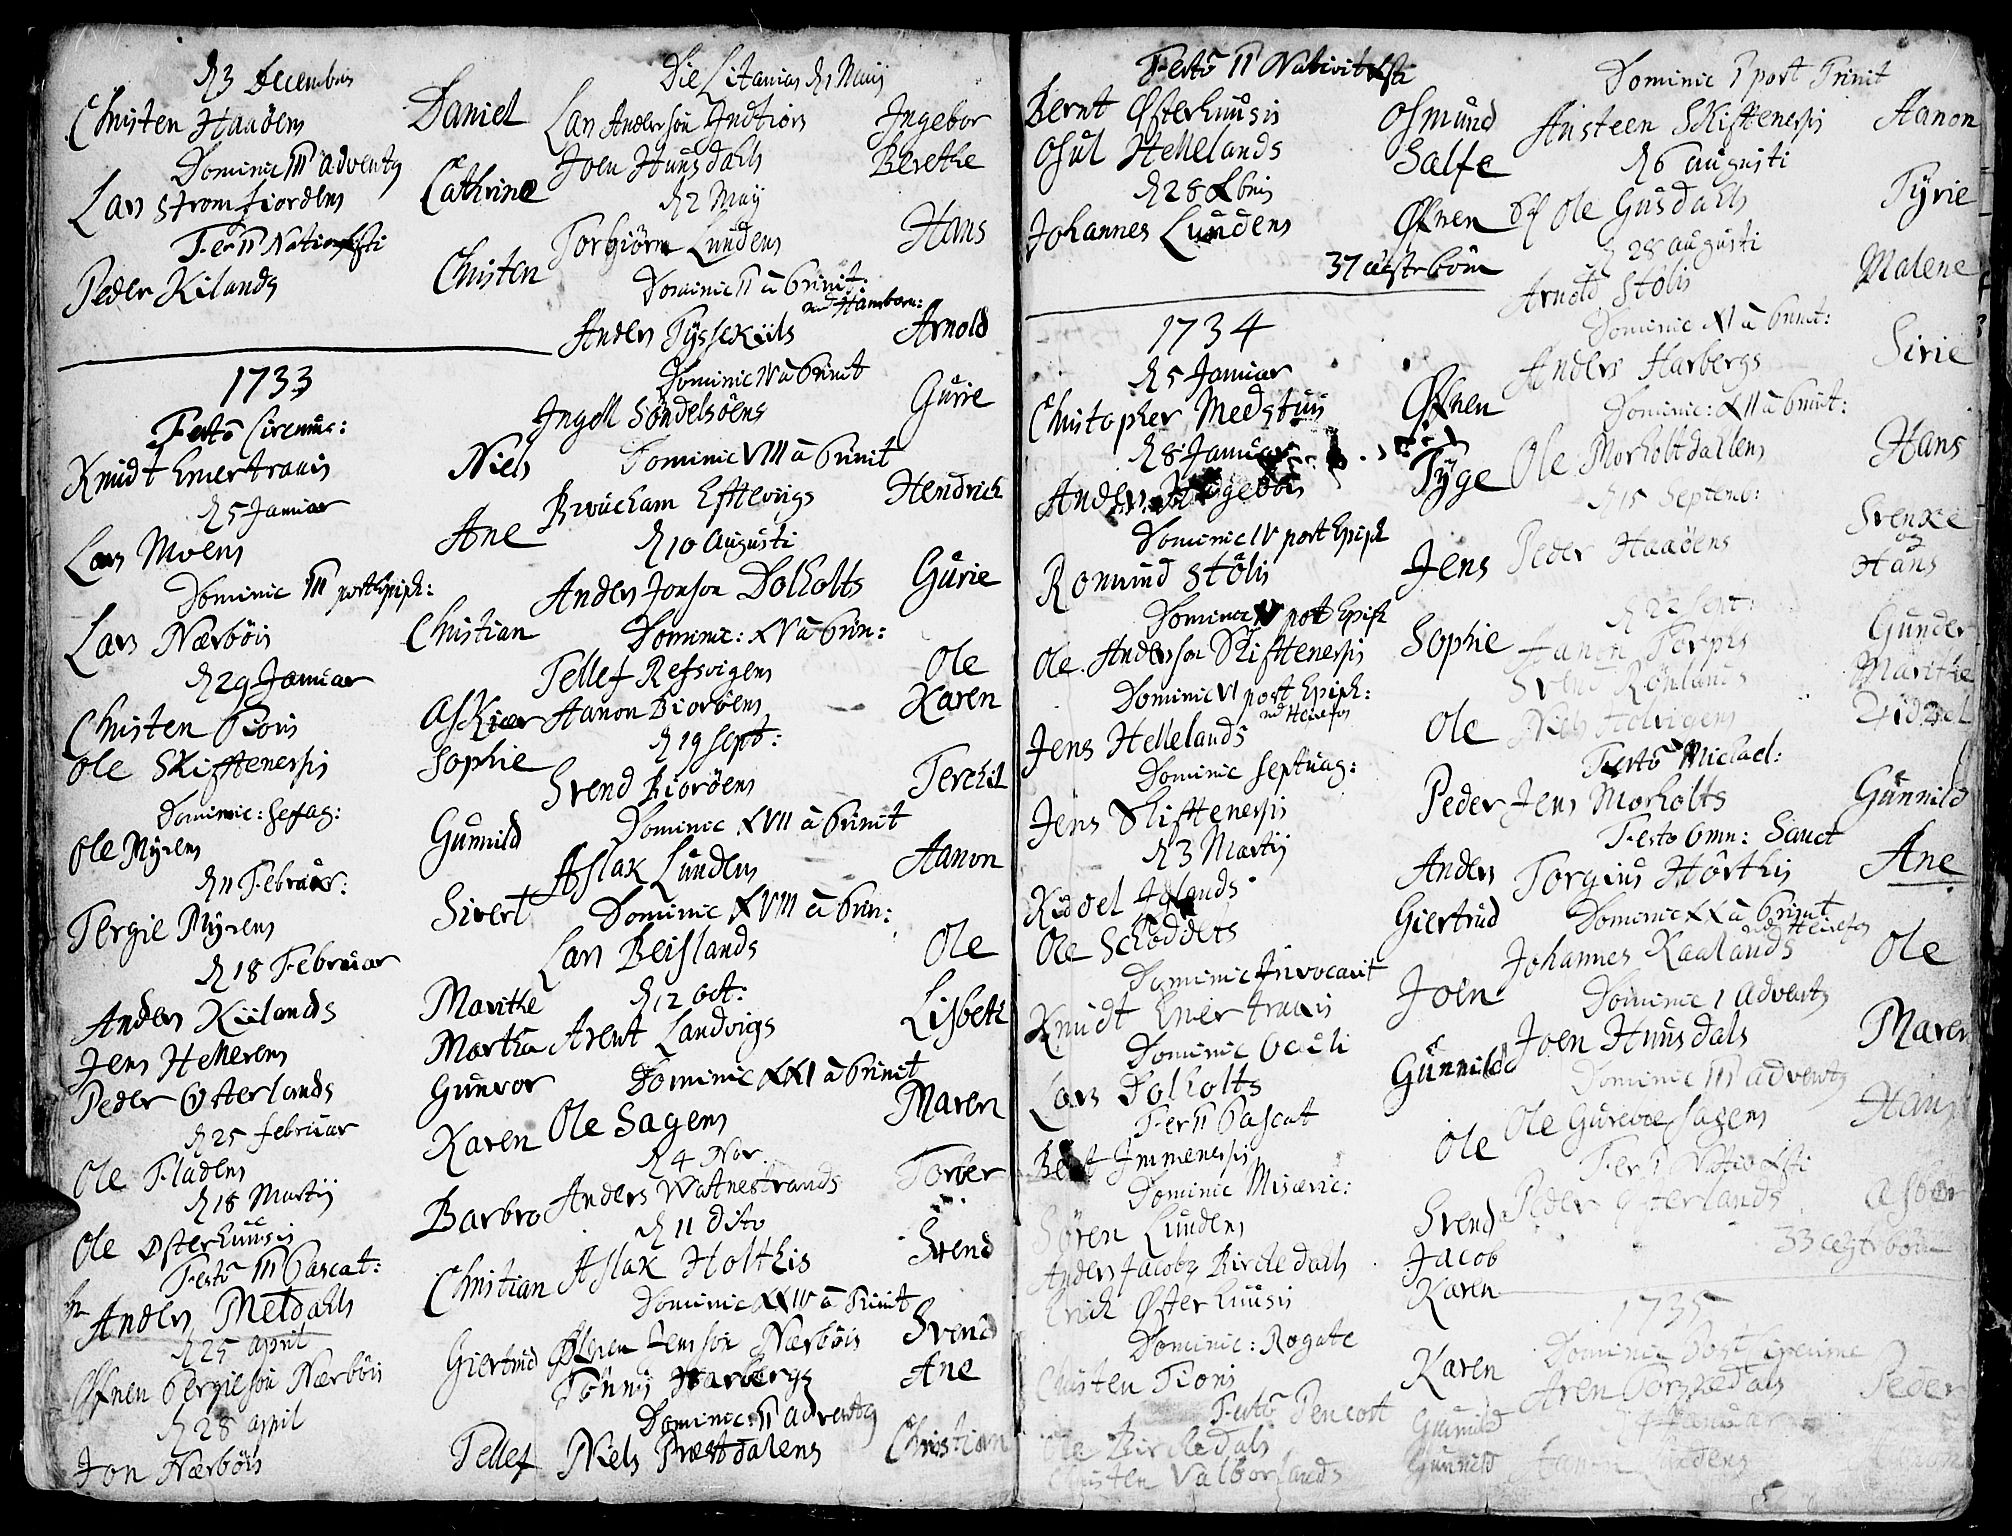 d 3 Decembris
Christen Haaøens Daniel
Dominic III adventg
Lars Stromfiordens Cathrine
Fer II Nativ Xsti
Peder Kilands Christen
1733
Festo Circumc:
Knudt Emertraais Niels
d 5 Januar
Lars Moens Ane
Dominic III post Epiph:
Lars Nærbôis Christian
d 29 Januar
Christen Tiôis Askier
Ole Skiftenessis Sophie
Dominic: Sexag:
Ole Myrens Gunnild
d 11 Februar:
Tergie Myrens Sivert
d 18 Februar
Anders Kiilands Marithe
Jens Hellerens Martha
Peder Osterlands Gunvor
d 25 februar
Ole Fladens Karen
d 18 Martij
Ole Østerhuusis Barbro
Festo III Pascat:
Anders Metdahls Christian
d 25 april
Øfnen Tergieson Nærbôis Giertrud
d 28 april
Jon Nærbôis Tellef
Die Litanias d 1 Maij
Lars Anderson Indtiôrs Ingebor
Joen Huusdahls Berethe
d 2 May
Torbiôrn Lundens Hans
Dominic II à trinit:
Anders Tyssekiils Arnold
Dominic IV à trinit
Ingell Sôndelsôens Gurie
Dominic VIII à trinit
Hendrich
d 10 Augusti
Anders Jonson Dolholts Gurie
Dominic: XV à trin:
Tellef Refsvigens Ole
Aanon Biorôens Karen
d 19 Sept:
Svend Biorôens Terchil
Dominic XVII à trinit
Aslak Lundens Aanon
Dominic XVIII à trin:
Lars Beislands Ole
d 12 oct:
Arent Landvigs Lisbeth
Dominic XXI à trinit
Ole Sagens Maren
d 4 Nov
Anders Watnestrands Torber
d 11 dito
Aslak Holthis Svend
Dominic XXIV à Trinit
Øfnen Jensson Nærbôis Svend
Tônnis Harbergs Ane
Dominic: II adventg
Niels Præstdalens Christian
Festo II Nativit Xsti
Bernt Østerhuusis Osmund
Osul Hellelands Salfe
d 28 Xbris
Johannes Lundens Øfnen
37 ægte børn
1734
d 5 Januar
Christopher Medstuis Øfnen
d 8 Januar
Anders Tyge
Dominic IV post Epiph
Romund Stôlis Jens
Dominic V post Epiph
Ole Anderson Skiftenessis Sophie
Dominic VI post Epiph:
Jens Hellelands Ole
Dominic Septuag:
Jens Skiftenessis Peder
d 3 Martij
Kiddel Iglands Anders
Ole Schoddets Giertrud
Dominic Invocavit
Knudt Emertraais Joen
Dominic Oculi
Lars Dolholts Gunnild
Fer II Pascat
Bernt Immenessis Ole
Dominic Miseric:
Sôren Lundens Svend
Anders Jacobs Bircledahls Jacob
Erich Østerhuusis Karen
Dominic: Rogate
Christen Tiôis Karen
Festo Pencost
Ole Bircledals Gunnild
Christen Valborlands Gunnild
Dominic I post Trinit
Ansteen Skiftenessis Aanon
d 6 augusti
Ole Gusdahls Tyrie
d 28 augusti
Arnold Stôlis Malene
Dominic XI à trinit:
Anders Harbergs Sirie
Dominic: XII à trinit:
Ole Morholtdallens Hans
d 15 Septemb:
Peder Haaôens Svenke
og
Hans
d 22 Sept:
Aanon Torpis Gunder
Svend Rônlands Marithe
Niels
Festo Michael:
Jens Morholts Gunnild
Festo Omn: Sanct
Torgius Hôrthis Ane
Dominic XX à trinit
Johannes Kaalands Ole
Dominic I adventg
Joen Huusdals Maren
Dominic III adventg
Ole Hans
Fer II Nativ Xsti
Peder Østerlands Asber
33 ægte børn
1735
Dominic post
Aren Peder
Januar
Aanon Lundens
5